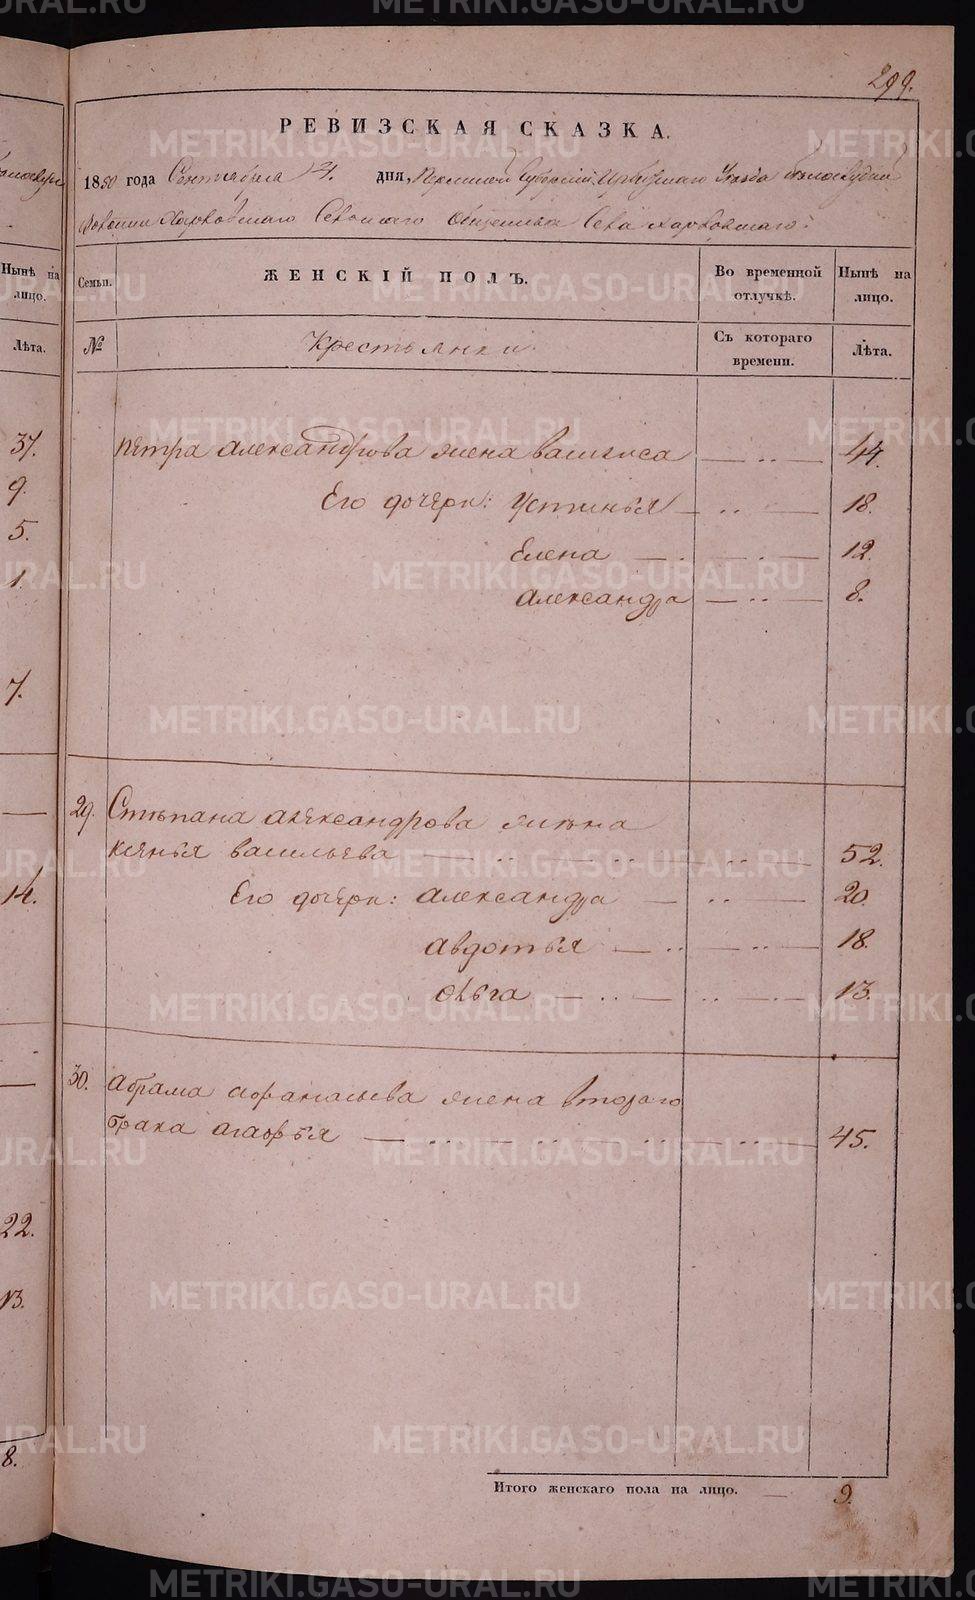 299.
РЕВИЗСКАЯ СКАЗКА.
1850 года Сентября дня, Пермской Губернии Ирбитскаго Уезда Белослудской
Волости Харловскаго Сельскаго общества Села Харловскаго:
Нынѣ на лицо.
Семьи.
ЖЕНСКІЙ ПОЛЪ.
Во временной отлучкѣ.
Нынѣ на лицо.
Лѣта.
№
Крестьянки
Съ котораго времени.
Лѣта.
37.
9.
5.
1.
7.
14.
22.
13.
8.
Петра Александрова жена Васигиса 44.
Его дочери: Устинья 18.
Елена 12.
Александра 8.
29. Степана Александрова жена
Ксенья Васильева 52.
Его дочери: Александра 20.
Авдотья 18.
Ольга 13.
30. Абрама Афанасьева жена втораго
брака Агафья 45.
Итого женскаго пола на лицо. — 9.
METRIKI.GASO-URAL.RU